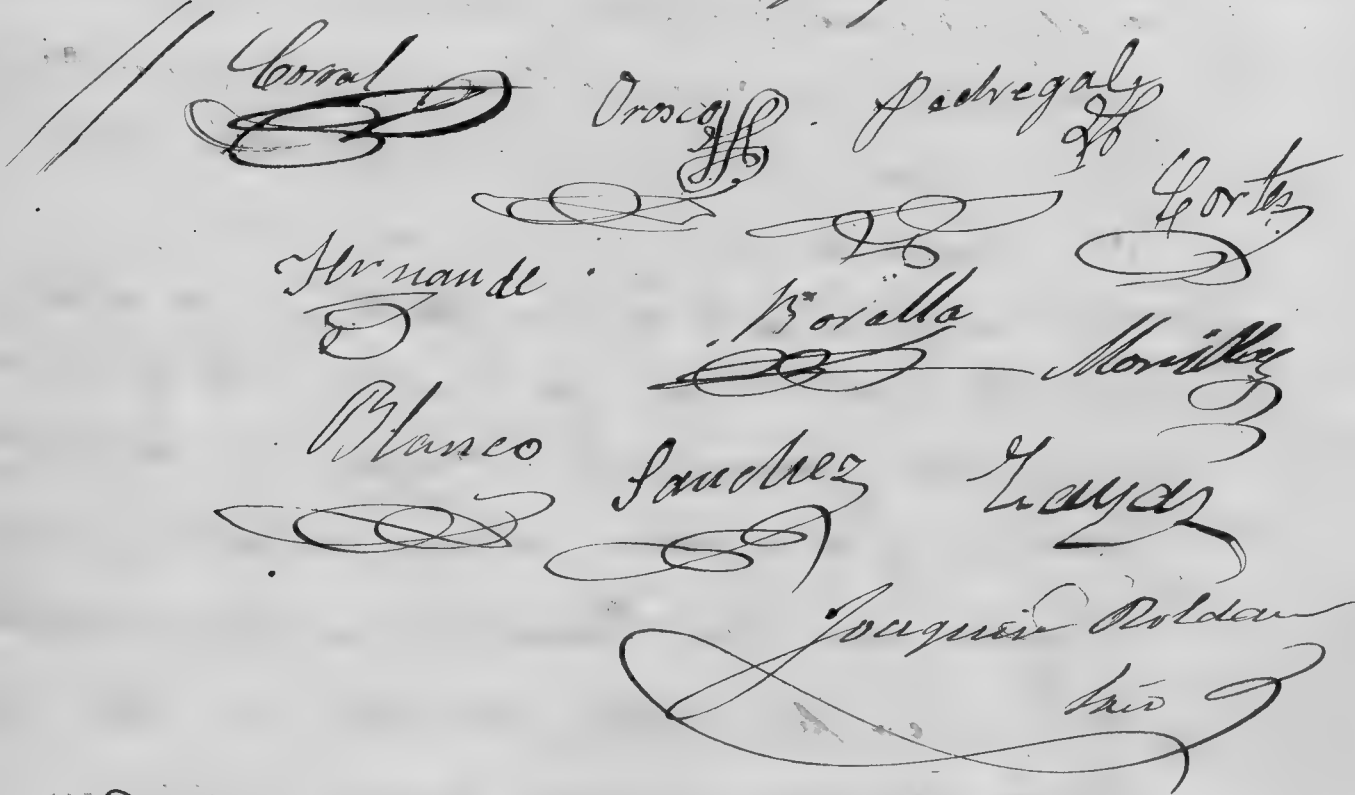 Corral Orosco Pedregal
Cortes
Hernande Boralla
Morilla
Blanco Sanchez Zayas
Joaquin Roldan
Srio